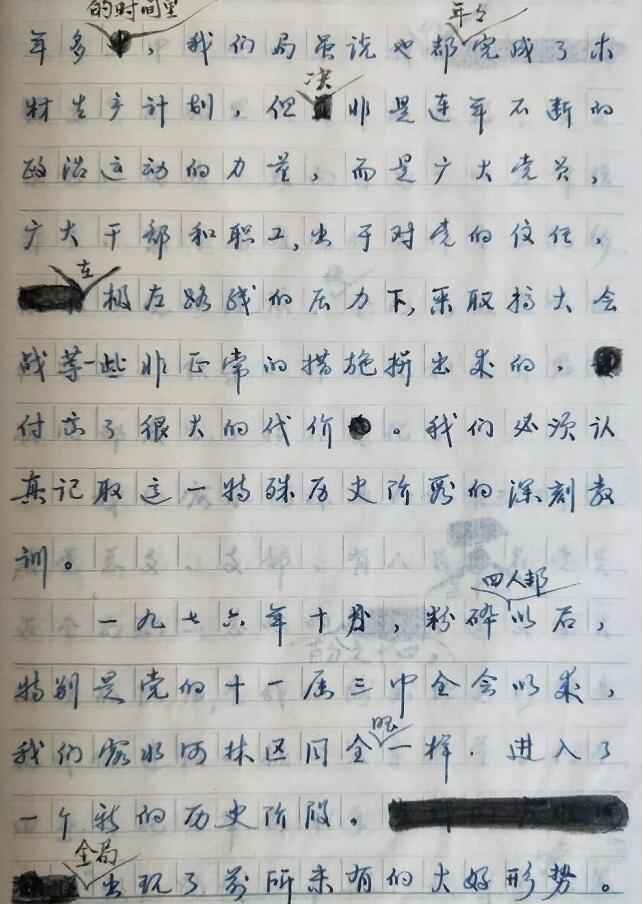 的时间里 年年
年多，我们局虽说也都完成了木
决
材生产计划，但非是连年不断的
政治运动的力量，而是广大党员，
广大干部和职工，出于对党的信任，
在
极左路线的压力下，采取搞大会
战等一些非正常的措施拼出来的，
付出了很大的代价。我们必须认
真记取这一特殊历史阶段的深刻教
训。
四人邦
一九七六年十月，粉碎以后，
特别是党的十一届三中全会以来，
国
我们露水河林区同全一样．进入了
一个新的历史阶段。
全局
出现了前所未有的大好形势。